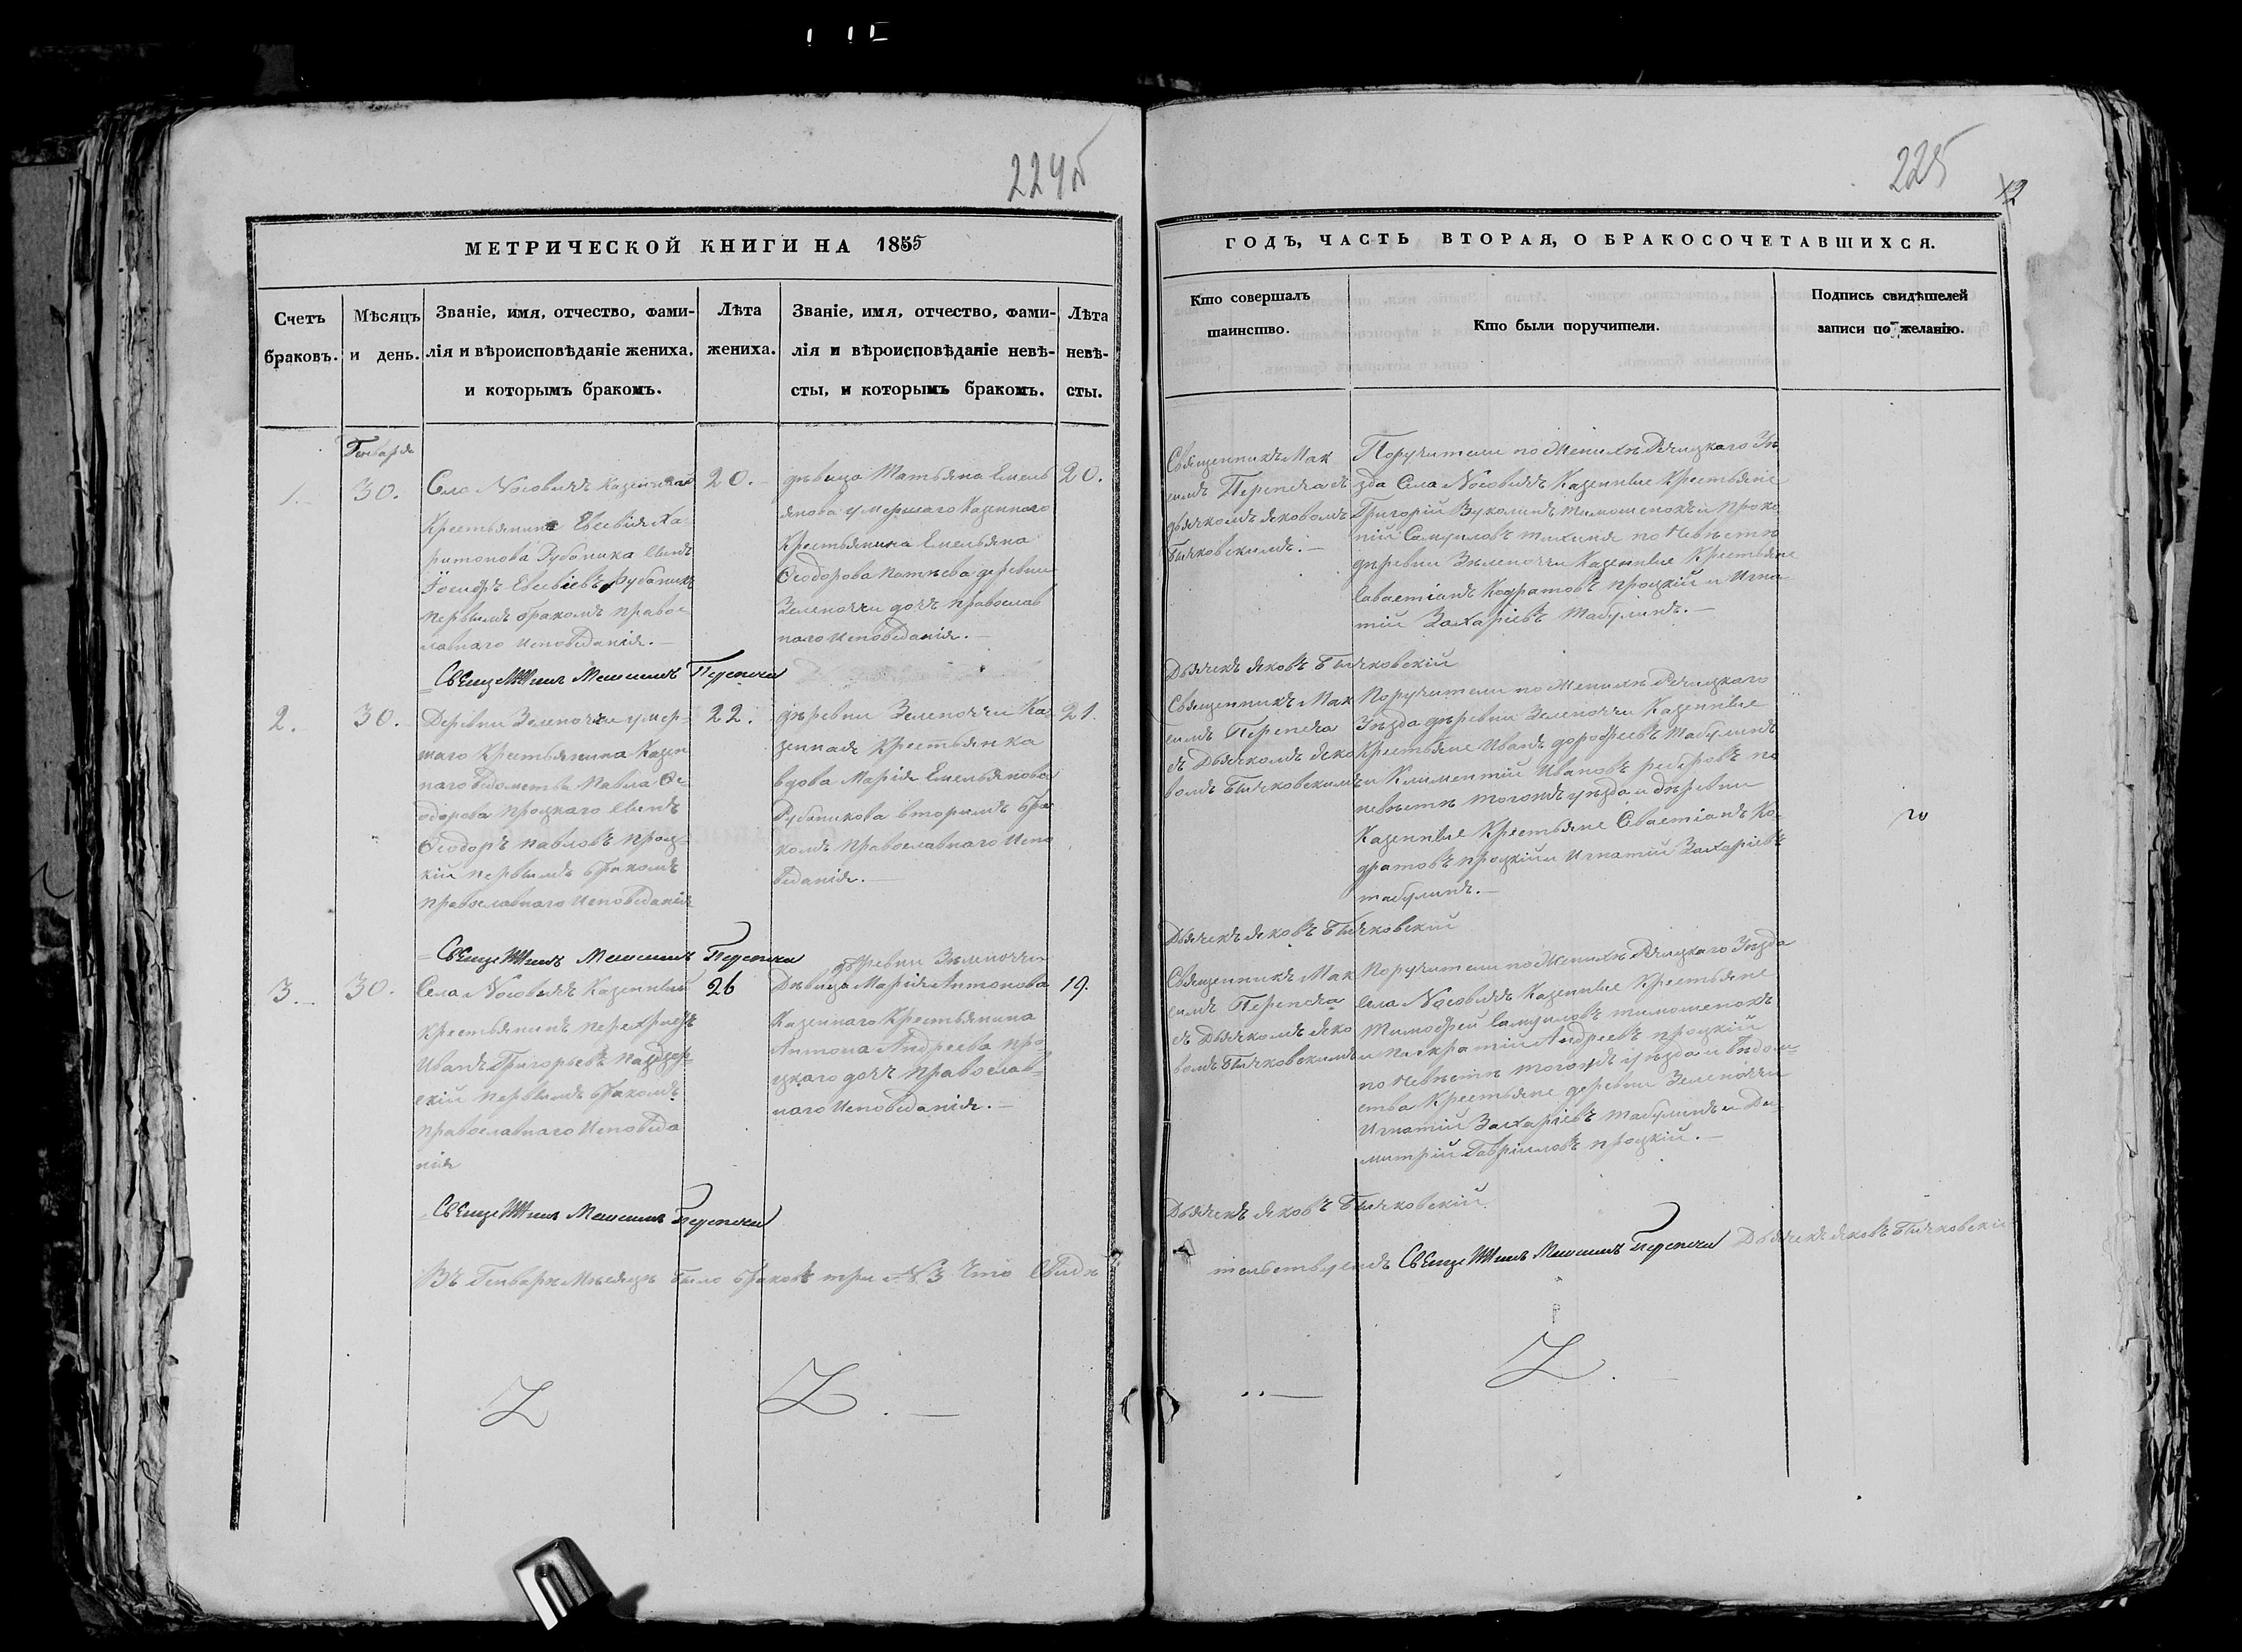 224б
МЕТРИЧЕСКОЙ КНИГИ НА 1855
Счетъ браковъ.
Мѣсяцъ и день.
Званіе, имя, отчество, фами-
лія и вѣроисповѣданіе жениха,
и которымъ бракомъ.
Лѣта
жениха.
Званіе, имя, отчество, фами-
лія и вѣроисповѣданіе невѣ-
сты, и которымъ бракомъ.
Лѣта
невѣ-
сты.
Генваря
1.
30.
Села Носовичъ Казенный
Крестьянина Евсевія Ха-
ритонова Рубаника сынъ
Іосифъ Евсевіевъ Рубаникъ
первымъ бракомъ правос-
лавнаго исповѣданія.
20.
дѣвица Татьяна Емель
янова умершаго Казеннаго
Крестьянина Емельяна
Ѳеодорова деревни
Зеленочки дочь православ
наго исповѣданія.
20.
2.
30.
Деревни Зеленочки умер-
шаго Крестьянина Казен
наго вѣдомства Павла Ѳе-
одорова Процкаго сынъ
Ѳеодоръ Павловъ Проц-
кій первымъ бракомъ
православнаго исповѣданія
22.
деревни Зеленочки Ка-
зенная Крестьянка
вдова Марія Емельянова
Рубаникова вторымъ бра-
комъ православнаго испо
вѣданія.
21.
3.
30.
Села Носовичъ Казенный
Крестьянинъ
Иванъ Григорьевъ
скій первымъ бракомъ
православнаго исповѣда
нія
26
деревни Зеленочки
Дѣвица Марія Антонова
Казеннаго Крестьянина
Антона Андреева Про
цкаго дочь православ-
наго исповѣданія.
19.
Въ Генварѣ Мѣсяцѣ было браковъ три №3 Что свидѣ
225
12
ГОДЪ, ЧАСТЬ ВТОРАЯ, О БРАКОСОЧЕТАВШИХСЯ.
Кто совершалъ
таинство.
Кто были поручители.
Подпись свидѣтелей
записи по желанію.
Священникъ Мак
симъ Перепеча съ
дьячкомъ Яковомъ
Бычковскимъ.
Поручители по Женихѣ Рѣчицкаго Уѣ
зда Села Носовичъ Казенные Крестьяне
Григорій Вуколинъ Тимошенокъ и Проко
пій Самуиловъ по Невѣстѣ
деревни Зеленочки Казенные Крестьяне
Савастіанъ Кодратовъ Процкій и Игна
тій Захаріевъ Табулинъ.
Дьячекъ Яковъ Бычковскій
Священникъ Мак
симъ Перепеча
съ Дьячкомъ Яко
вомъ Бычковскимъ
Поручители по Женихѣ Рѣчицкаго
Уѣзда деревни Зеленочки Казенные
Крестьяне Иванъ Дорофеевъ Табулинъ
и Климентій Ивановъ по
невѣстѣ тогожъ уѣзда и деревни
Казенные Крестьяне Севастіанъ Ко-
дратовъ Процкій и Игнатій Захаріевъ
Табулинъ.
Дьячекъ Яковъ Бычковскій
Священникъ Мак
симъ Перепеча
съ Дьячкомъ Яко
вомъ Бычковскимъ
Поручители по Женихѣ Рѣчицкаго Уѣзда
Села Носовичъ Казенные Крестьяне
Тимофей Самуиловъ Тимошенокъ
и Панкратій Андреевъ Процкій
по Невѣстѣ тогожъ уѣзда и вѣдом-
ства Крестьяне деревни Зеленочки
Игнатій Захаріевъ Табулинъ и Ди-
митрій Гавріиловъ Процкій.
Дьячекъ Яковъ Бычковскій
тельствуемъ Дьячекъ Яковъ Бычковскій